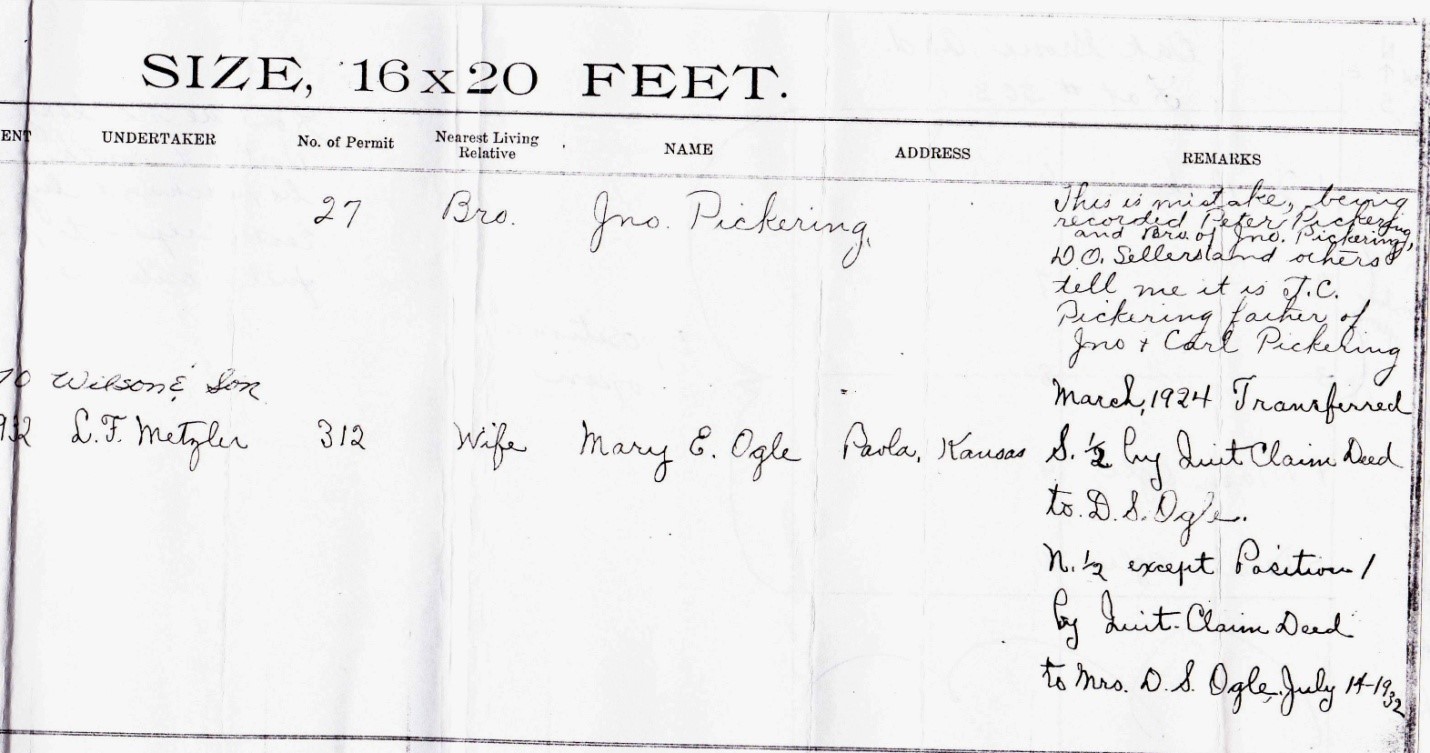 SIZE, 16x20 FEET.
ENT UNDERTAKER No. of Permit Nearest Living Relative NAME ADDRESS REMARKS
27 Bro. Jno. Pickering,
This is mistake, being
recorded Peter Pickering
and Bro. of Jno. Pickering,
D.O. Sellers and others
tell me it is J.C.
Pickering father of
Jno + Carl Pickering
70 Wilson & Son
March, 1924 Transferred
932 L.F. Metzler 312 Wife Mary E. Ogle Paola, Kansas S. 1/2 by Quit Claim Deed
to D.S. Ogle.
N. 1/2 except Position 1
by Quit-Claim Deed
to Mrs. D.S. Ogle, July 14-1932